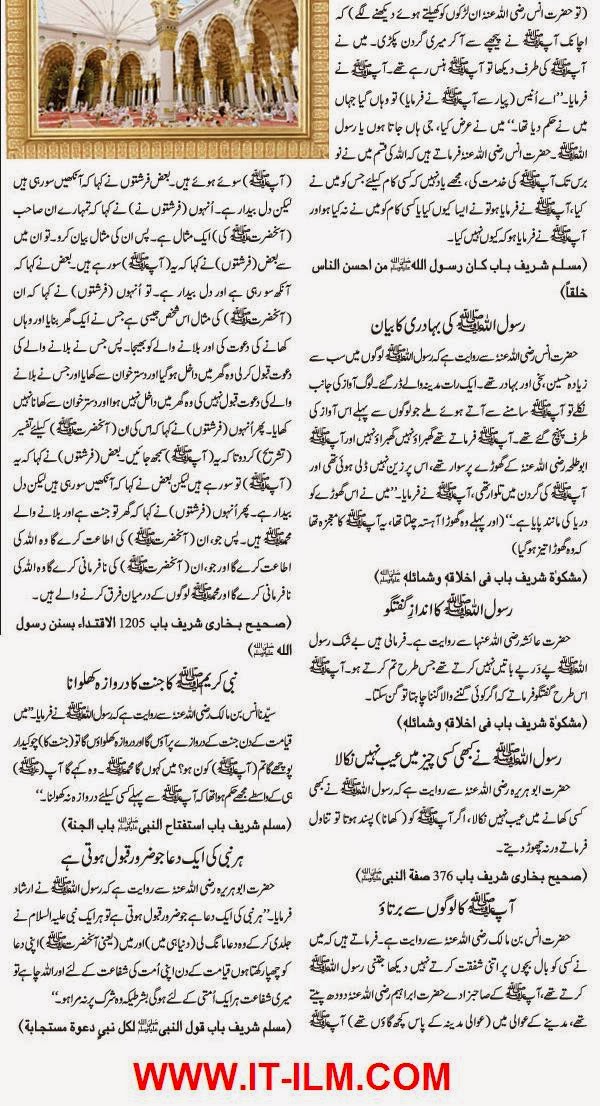 (تو حضرت انس رضی اللہ عنہٗ ان لڑکوں کو کھیلتے ہوئے دیکھنے لگے) کہ
اچانک آپ ﷺ نے پیچھے سے آ کر میری گردن پکڑی۔ میں نے
آپ ﷺ کی طرف دیکھا تو آپ ﷺ ہنس رہے تھے۔ آپ ﷺ نے
فرمایا۔ ’’اے اُنیس (پیار سے آپ ﷺ نے فرمایا) تو وہاں گیا جہاں
میں نے حکم دیا تھا۔‘‘ میں نے عرض کیا، جی ہاں جاتا ہوں یا رسول
اللہ ﷺ۔ حضرت انس رضی اللہ عنہٗ فرماتے ہیں کہ اللہ کی قسم میں نے نو
برس تک آپ ﷺ کی خدمت کی، مجھے یاد نہیں کہ کسی کام کیلئے جس کو میں نے
کیا، آپ ﷺ نے فرمایا ہو تو نے ایسا کیوں کیا یا کسی کام کو میں نے نہ کیا ہو اور
آپ ﷺ نے فرمایا ہو کہ کیوں نہیں کیا۔
(مسلم شریف باب کان رسول اللہ ﷺ من احسن الناس
خلقاً)
رسول اللہ ﷺ کی بہادری کا بیان
حضرت انس رضی اللہ عنہٗ سے روایت ہے کہ رسول اللہ ﷺ لوگوں میں سب سے
زیادہ حسین، سخی اور بہادر تھے۔ ایک رات مدینہ والے ڈر گئے۔ لوگ آواز کی جانب
نکلے تو آپ ﷺ سامنے سے آتے ہوئے ملے جو لوگوں سے پہلے اس آواز کی
طرف پہنچ گئے تھے۔ آپ ﷺ فرماتے تھے گھبراؤ نہیں گھبراؤ نہیں اور آپ ﷺ
ابو طلحہ رضی اللہ عنہٗ کے گھوڑے پر سوار تھے، اس پر زین نہیں ڈلی ہوئی تھی اور
آپ ﷺ کی گردن میں تلوار تھی، آپ ﷺ نے فرمایا۔ ’’میں نے اس گھوڑے کو
دریا کی مانند پایا ہے۔‘‘ (اور پہلے وہ گھوڑا آہستہ چلتا تھا، یہ آپ ﷺ کا معجزہ تھا
کہ وہ گھوڑا تیز ہو گیا)
(مشکوٰۃ شریف باب فی اخلاقہٖ وشمائلہٖ ﷺ)
رسول اللہ ﷺ کا اندازِ گفتگو
حضرت عائشہ رضی اللہ عنہا سے روایت ہے۔ فرماتی ہیں بے شک رسول
اللہ ﷺ پے درپے باتیں نہیں کرتے تھے جس طرح تم کرتے ہو۔ آپ ﷺ
اس طرح گفتگو فرماتے کہ اگر کوئی گننے والا گننا چاہتا تو گن سکتا۔
(مشکوٰۃ شریف باب فی اخلاقہٖ وشمائلہٖ ﷺ)
رسول اللہ ﷺ نے کبھی کسی چیز میں عیب نہیں نکالا
حضرت ابو ہریرہ رضی اللہ عنہٗ سے روایت ہے کہ رسول اللہ ﷺ نے کبھی
کسی کھانے میں عیب نہیں نکالا، اگر آپ ﷺ کو (کھانا) پسند ہوتا تو تناول
فرماتے ورنہ چھوڑ دیتے۔
(صحیح بخاری شریف باب 376 صفۃ النبی ﷺ)
آپ ﷺ کا لوگوں سے برتاؤ
حضرت انس بن مالک رضی اللہ عنہٗ سے روایت ہے۔ فرماتے ہیں کہ میں
نے کسی کو بال بچوں پر اتنی شفقت کرتے نہیں دیکھا جتنی رسول اللہ ﷺ
کرتے تھے، آپ ﷺ کے صاحبزادے حضرت ابراہیم رضی اللہ عنہٗ دودھ پیتے
تھے، مدینے کے عوالی میں (عوالی مدینہ کے پاس کچھ گاؤں تھے) آپ ﷺ
(آپ ﷺ) سوئے ہوئے ہیں۔ بعض فرشتوں نے کہا کہ آنکھیں سو رہی ہیں
لیکن دل بیدار ہے۔ اُنہوں (فرشتوں نے) نے کہا کہ تمہارے ان صاحب
(آنحضرت ﷺ کی) ایک مثال ہے۔ پس ان کی مثال بیان کرو۔ تو ان میں
سے بعض (فرشتوں) نے کہا کہ یہ (آپ ﷺ) سو رہے ہیں۔ بعض نے کہا کہ
آنکھ سو رہی ہے اور دل بیدار ہے۔ تو اُنہوں (فرشتوں) نے کہا کہ ان
(آنحضرت ﷺ) کی مثال اس شخص جیسی ہے جس نے ایک گھر بنایا اور وہاں
کھانے کی دعوت کی اور بلانے والے کو بھیجا۔ پس جس نے بلانے والے کی
دعوت قبول کر لی وہ گھر میں داخل ہو گیا اور دسترخوان سے کھایا اور جس نے بلانے
والے کی دعوت قبول نہیں کی وہ گھر میں داخل نہیں ہوا اور دسترخوان سے کھانا نہیں
کھایا۔ پھر اُنہوں (فرشتوں) نے کہا کہ اس کی ان (آنحضرت ﷺ) کیلئے تفسیر
(تشریح) کر دو تا کہ یہ (آپ ﷺ) سمجھ جائیں۔ بعض (فرشتوں) نے کہا کہ یہ
(آپ ﷺ) تو سو رہے ہیں لیکن بعض نے کہا کہ آنکھیں سو رہی ہیں لیکن دل
بیدار ہے۔ پھر اُنہوں (فرشتوں) نے کہا کہ گھر تو جنت ہے اور بلانے والے
محمد ﷺ ہیں۔ پس جو، ان (آنحضرت ﷺ) کی اطاعت کرے گا وہ اللہ کی
اطاعت کرے گا اور جو، ان (آنحضرت ﷺ) کی نافرمانی کرے گا وہ اللہ کی
نافرمانی کرے گا اور محمد ﷺ لوگوں کے درمیان فرق کرنے والے ہیں۔
(صحیح بخاری شریف باب 1205 الاقتداء بسنن رسول
اللہ ﷺ)
نبی کریم ﷺ کا جنت کا دروازہ کھلوانا
سیّدنا انس بن مالک رضی اللہ عنہٗ سے روایت ہے کہ رسول اللہ ﷺ نے فرمایا۔ ’’میں
قیامت کے دن جنت کے دروازے پر آؤں گا اور دروازہ کھلواؤں گا تو (جنت کا) چوکیدار
پوچھے گا تم (آپ ﷺ) کون ہو؟ میں کہوں گا محمد ﷺ۔ وہ کہے گا آپ (ﷺ)
ہی کے واسطے مجھے حکم ہوا تھا کہ آپ ﷺ سے پہلے کسی کیلئے دروازہ نہ کھولنا۔‘‘
(مسلم شریف باب استفتاح النبی ﷺ باب الجنۃ)
ہر نبی کی ایک دعا جو ضرور قبول ہوتی ہے
حضرت ابو ہریرہ رضی اللہ عنہٗ سے روایت ہے کہ رسول اللہ ﷺ نے ارشاد
فرمایا۔ ’’ہر نبی کی ایک دعا ہے جو ضرور قبول ہوتی ہے تو ہر ایک نبی علیہ السلام نے
جلدی کر کے وہ دعا مانگ لی (دنیا ہی میں) اور میں (یعنی آنحضرت ﷺ) اپنی دعا
کو چھپا رکھتا ہوں قیامت کے دن اپنی اُمت کی شفاعت کے لئے اور اللہ چاہے تو
میری شفاعت ہر ایک اُمتی کے لئے ہو گی بشرطیکہ وہ شرک پر نہ مرا ہو۔‘‘
(مسلم شریف باب قول النبی ﷺ لکل نبی دعوۃ مستجابۃ)
WWW.IT-ILM.COM